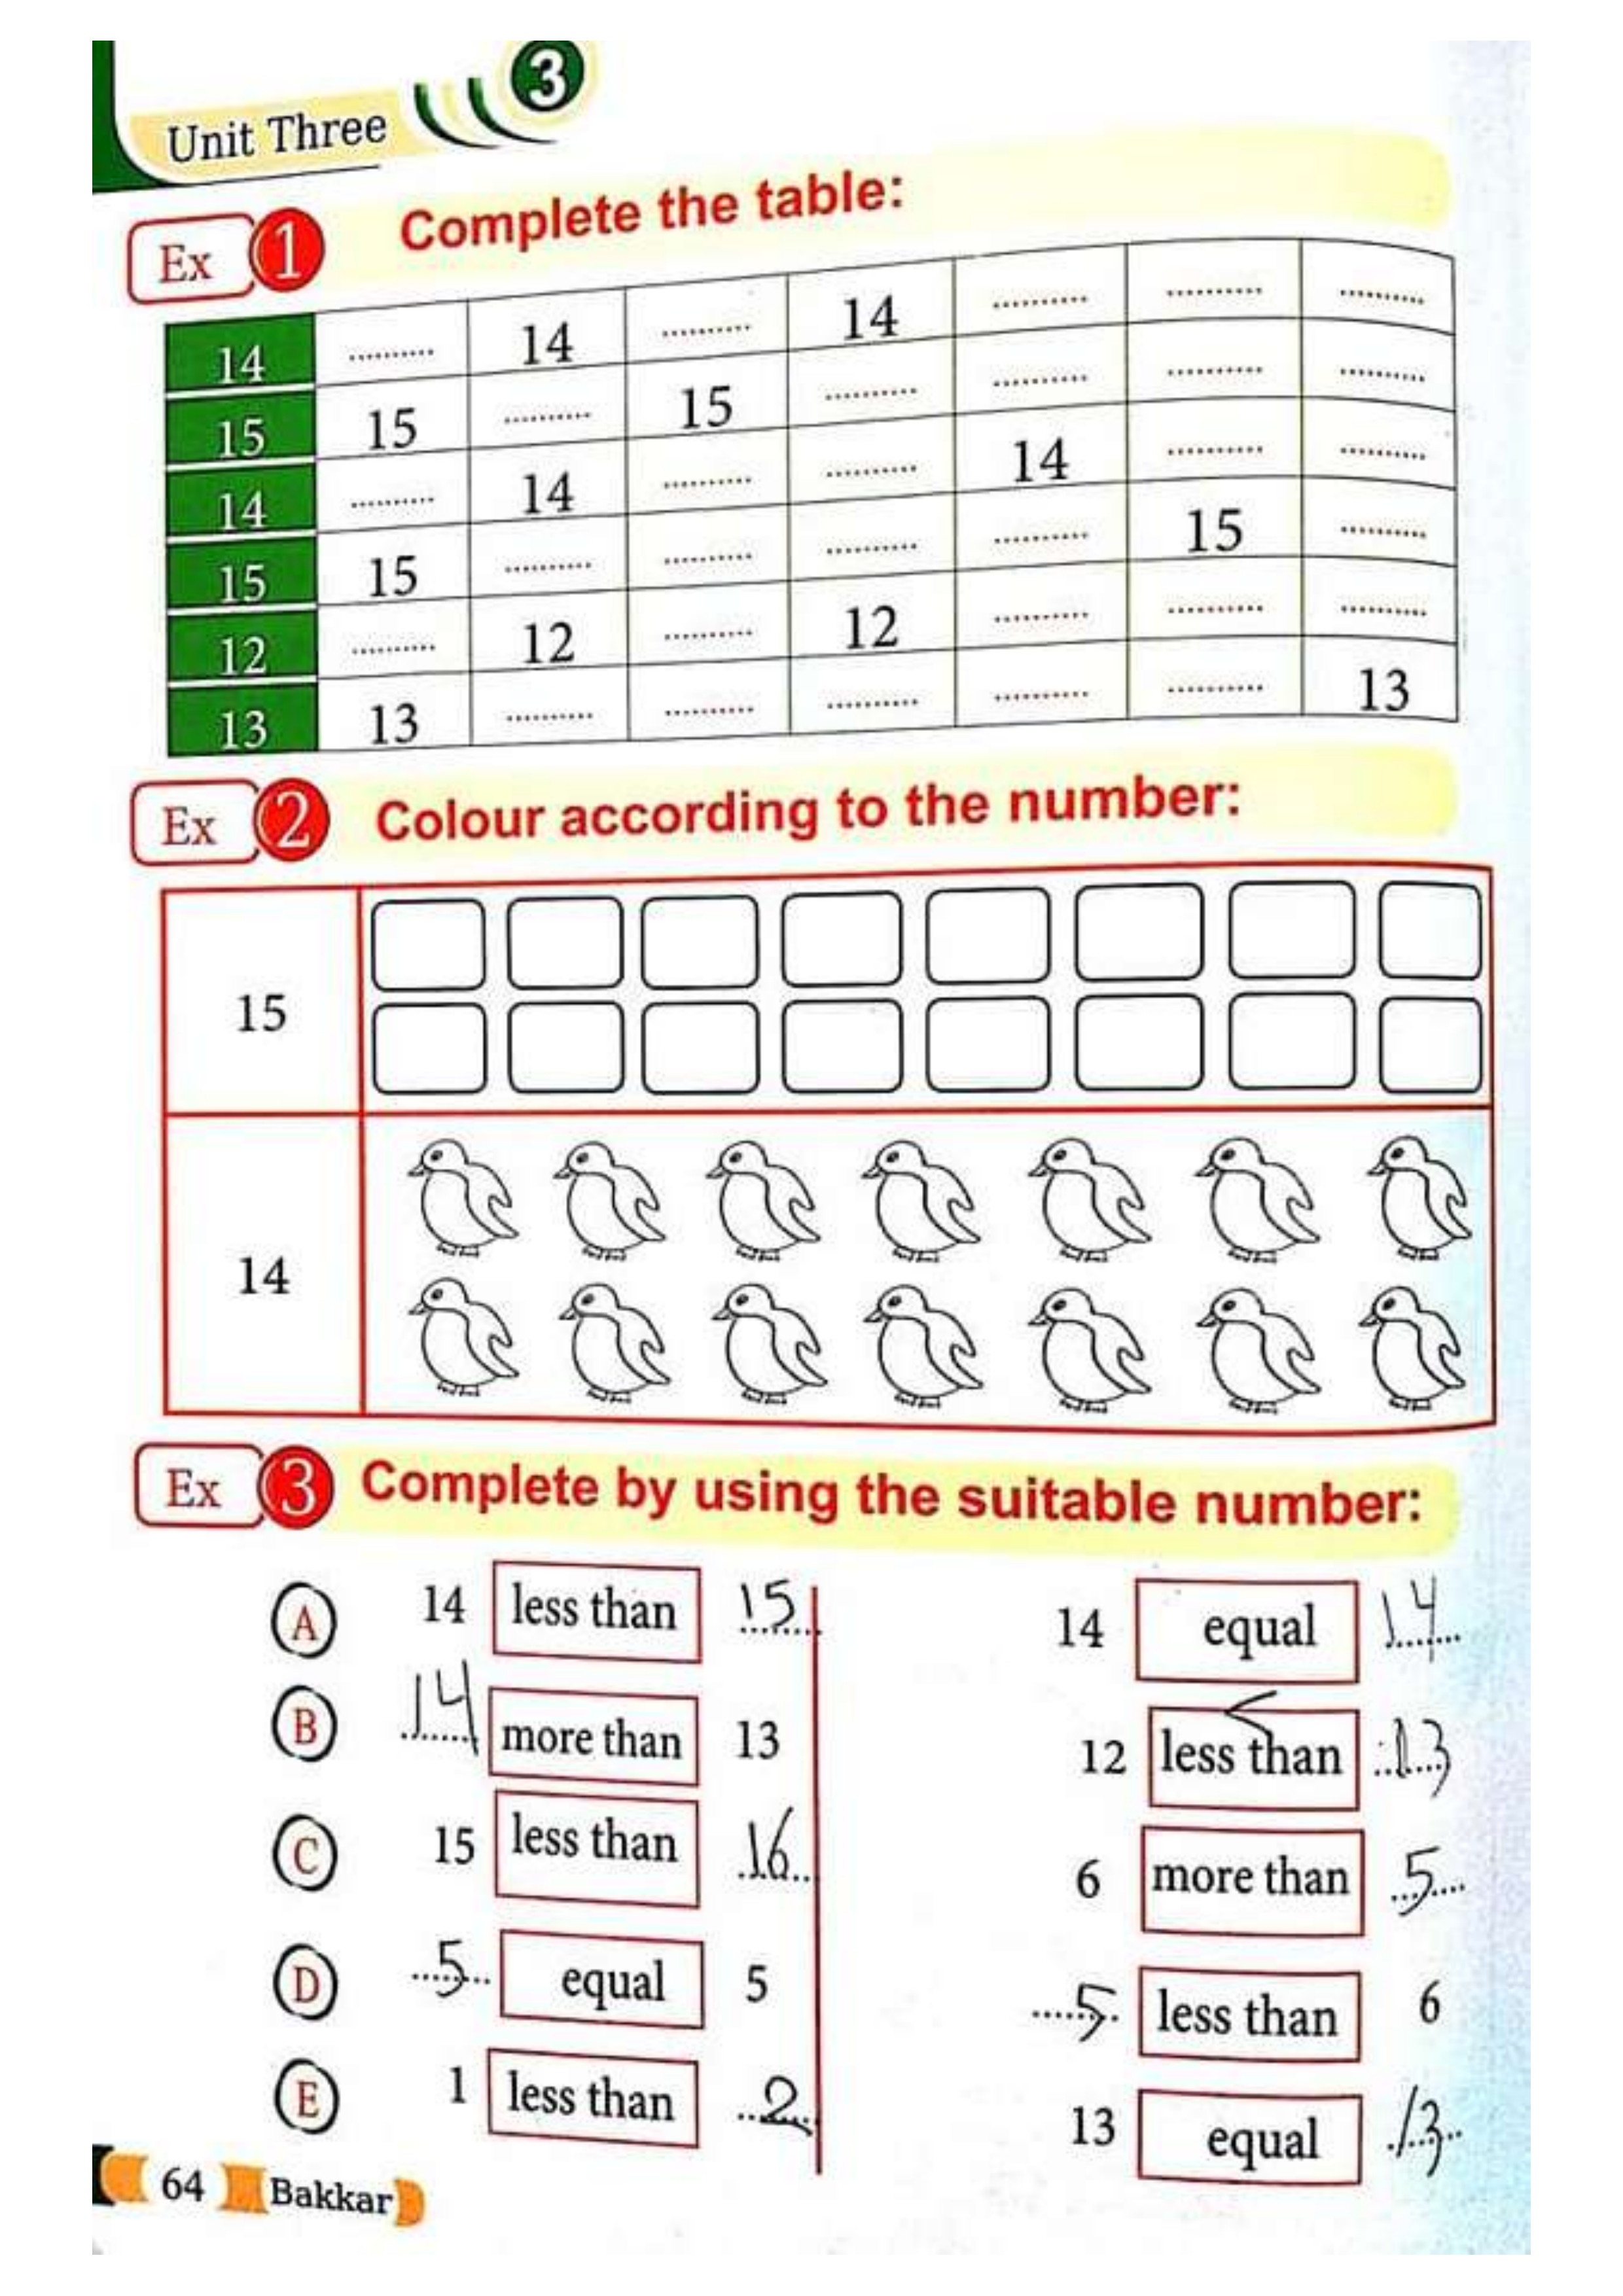 3
Unit Three
Ex 1 Complete the table:
14 .......... 14 .......... 14 .......... .......... ..........
15 15 .......... 15 .......... .......... .......... ..........
14 .......... 14 .......... .......... 14 .......... ..........
15 15 .......... .......... .......... .......... 15 ..........
12 .......... 12 .......... 12 .......... .......... ..........
13 13 .......... .......... .......... .......... .......... 13
Ex 2 Colour according to the number:
15
14
Ex 3 Complete by using the suitable number:
A 14 less than 15 14 equal 14
B 14 more than 13 12 less than 13
<
C 15 less than 16 6 more than 5
D 5 equal 5 5 less than 6
E 1 less than 2 13 equal 13
64 Bakkar